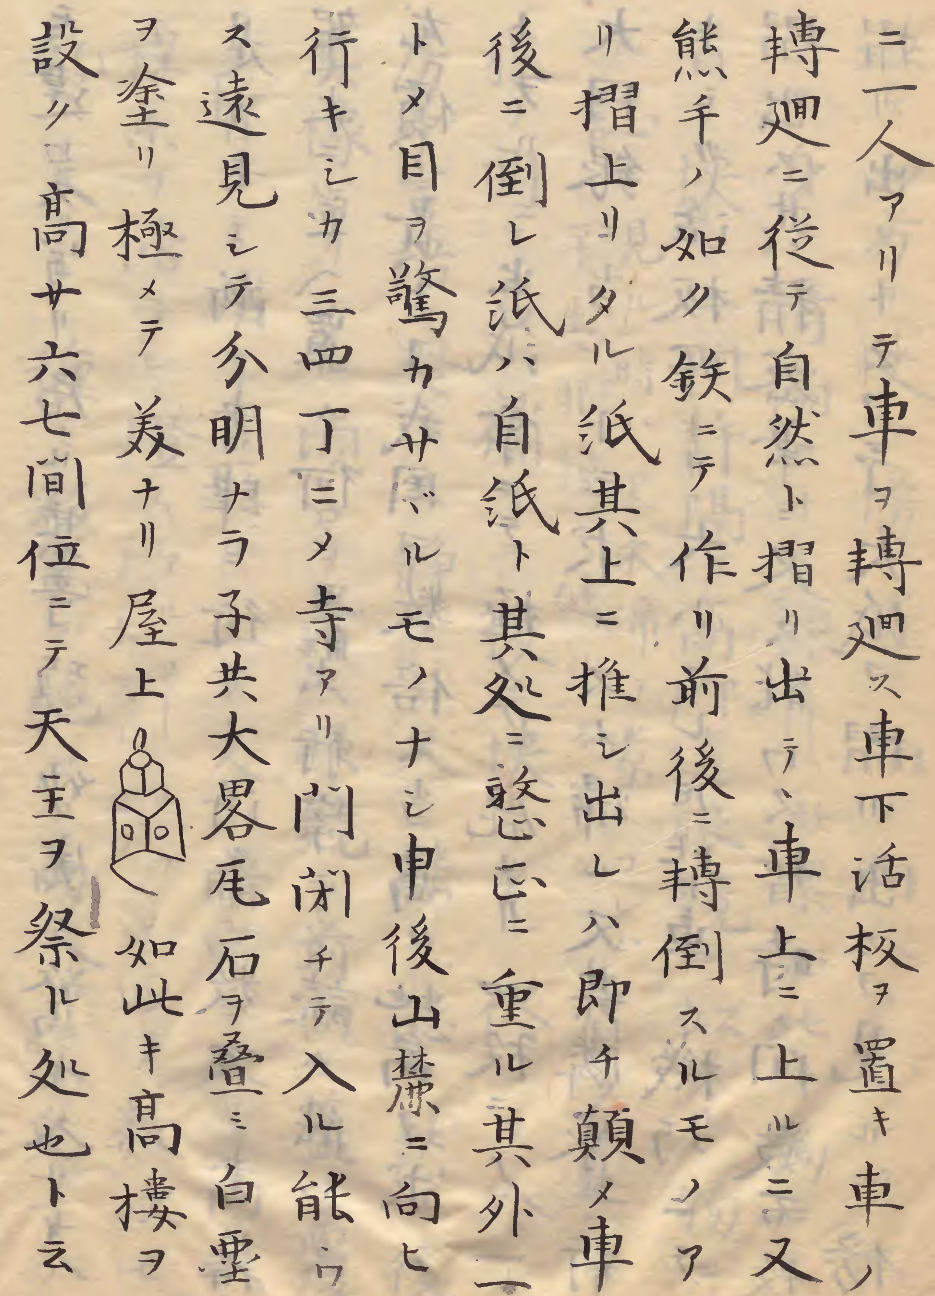 ニ一人アリテ車ヲ轉廻ス車下活板ヲ置キ車ノ
轉廻ニ従テ自然ト摺リ出テヽ車上ニ上ルニ又
熊手ノ如ク鉄ニテ作リ前後ニ轉倒スルモノア
リ摺上リタル紙其上ニ推シ出レハ即チ顛メ車
後ニ倒レ紙ハ自紙ト其処ニ整正ニ重ル其外一
トメ目ヲ驚カサヾルモノナシ申後山麓ニ向ヒ
行キシカ三四丁ニメ寺アリ門閉チテ入ル能ワ
ス遠見シテ分明ナラ子共大畧瓦石ヲ疊ミ白堊
ヲ塗リ極メテ美ナリ屋上如此キ高樓ヲ
設ク高サ六七間位ニテ天主ヲ祭ル処也ト云